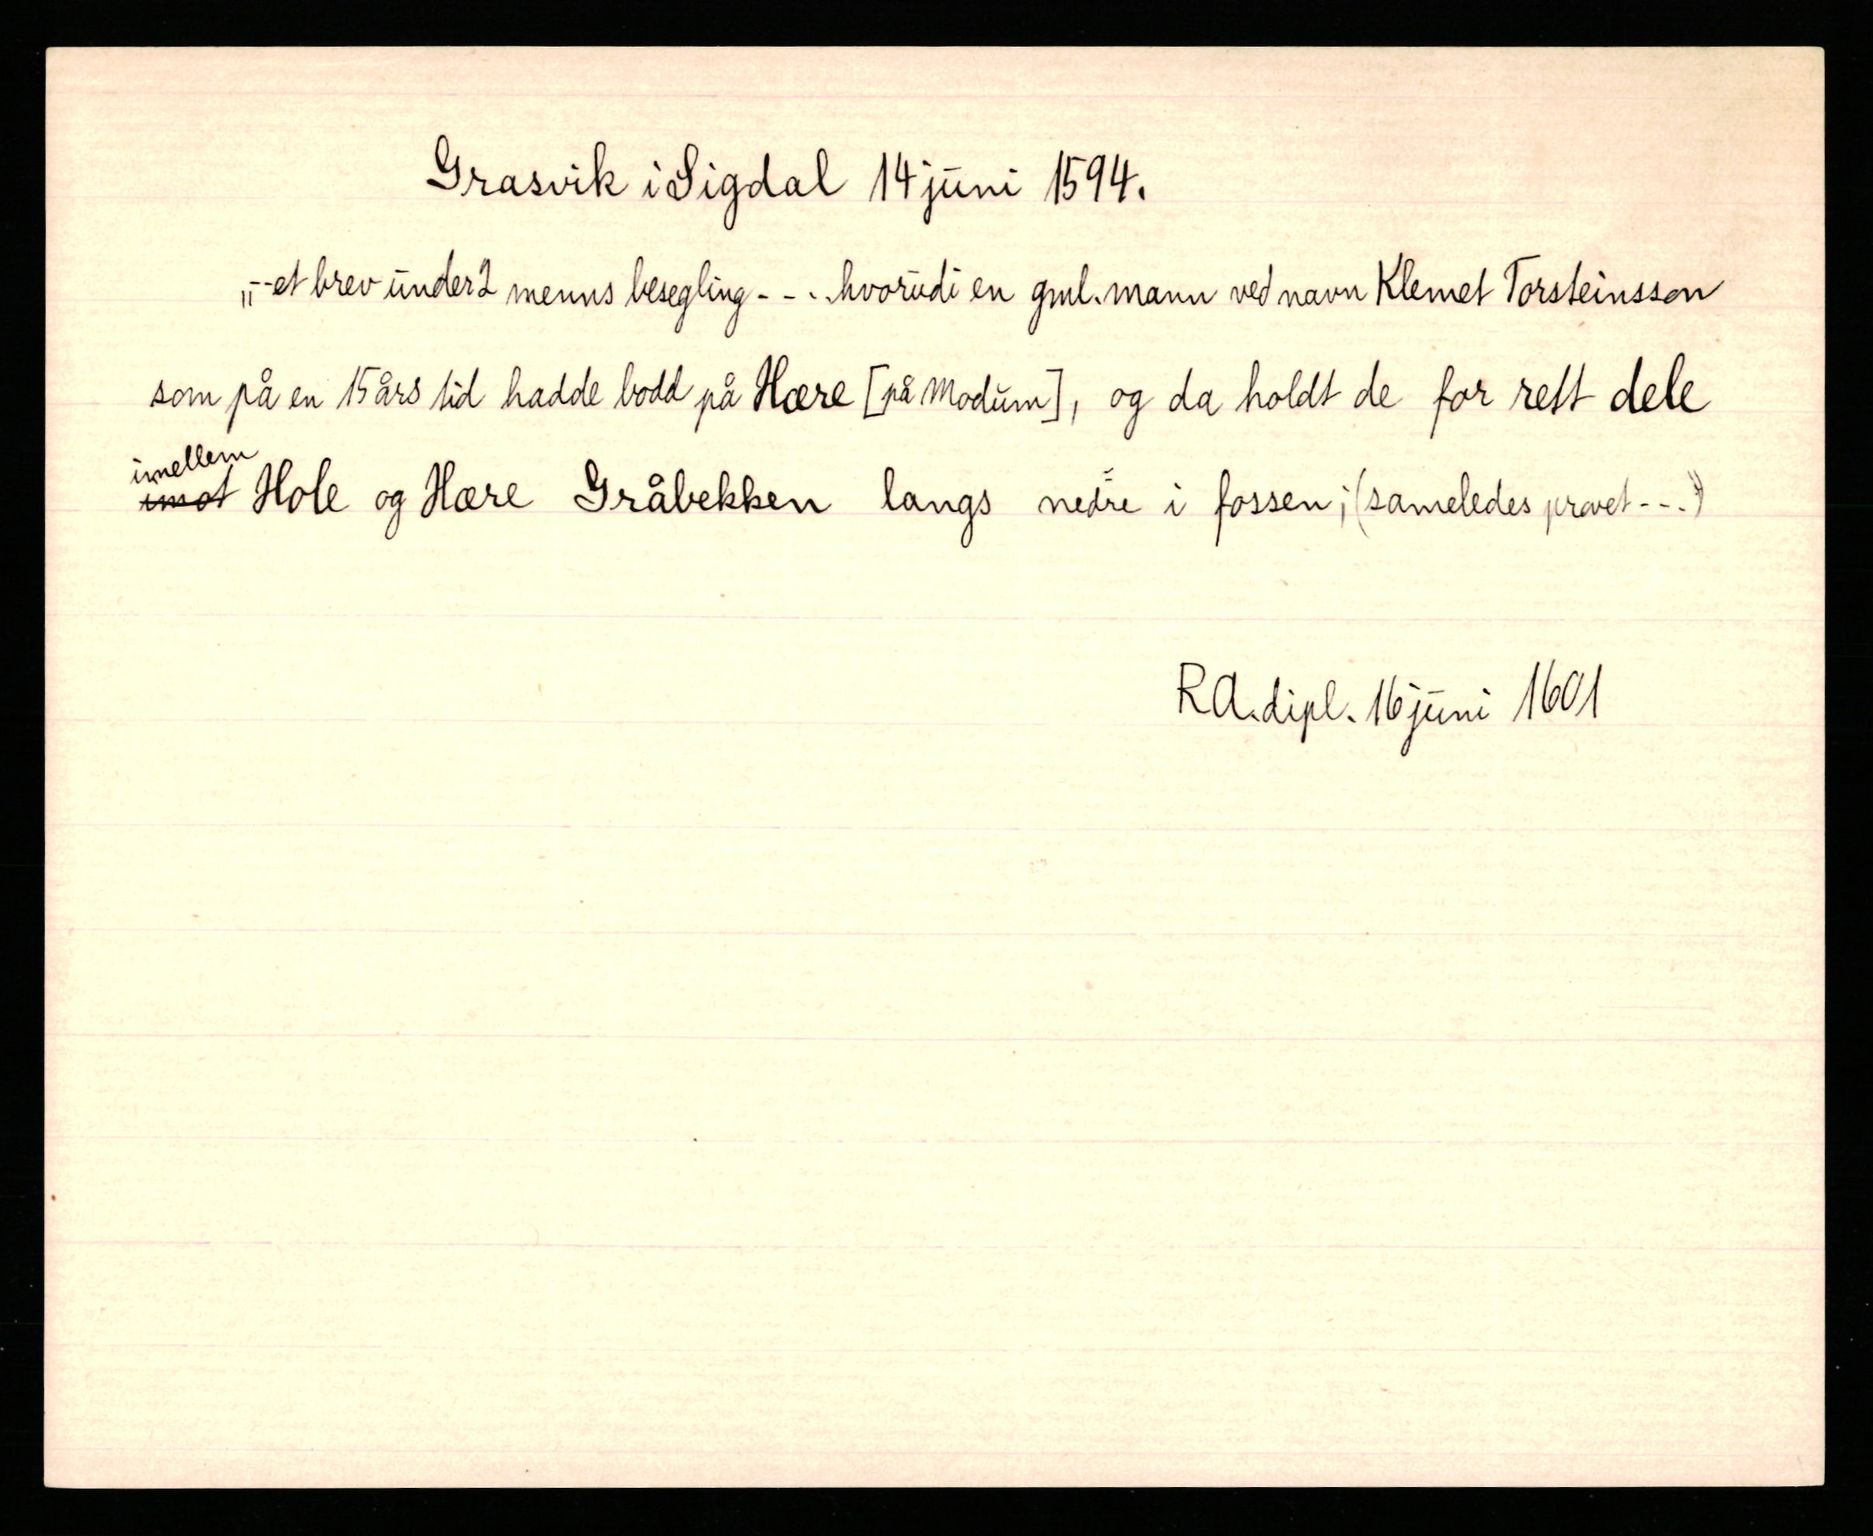 Grasvik i Sigdal 14 juni 1594.
„-- et brev under 2 menns besegling - - . . hvorudi en gml. mann ved navn Klemet Torsteinsson
som på en 15 års tid hadde bodd på Hære [på Modum], og da holdt de for rett dele
imellem
imot Hole og Hære Gråbekken langs nedre i fossen; (sameledes prøvet - - -")
RA. dipl. 16 juni 1601